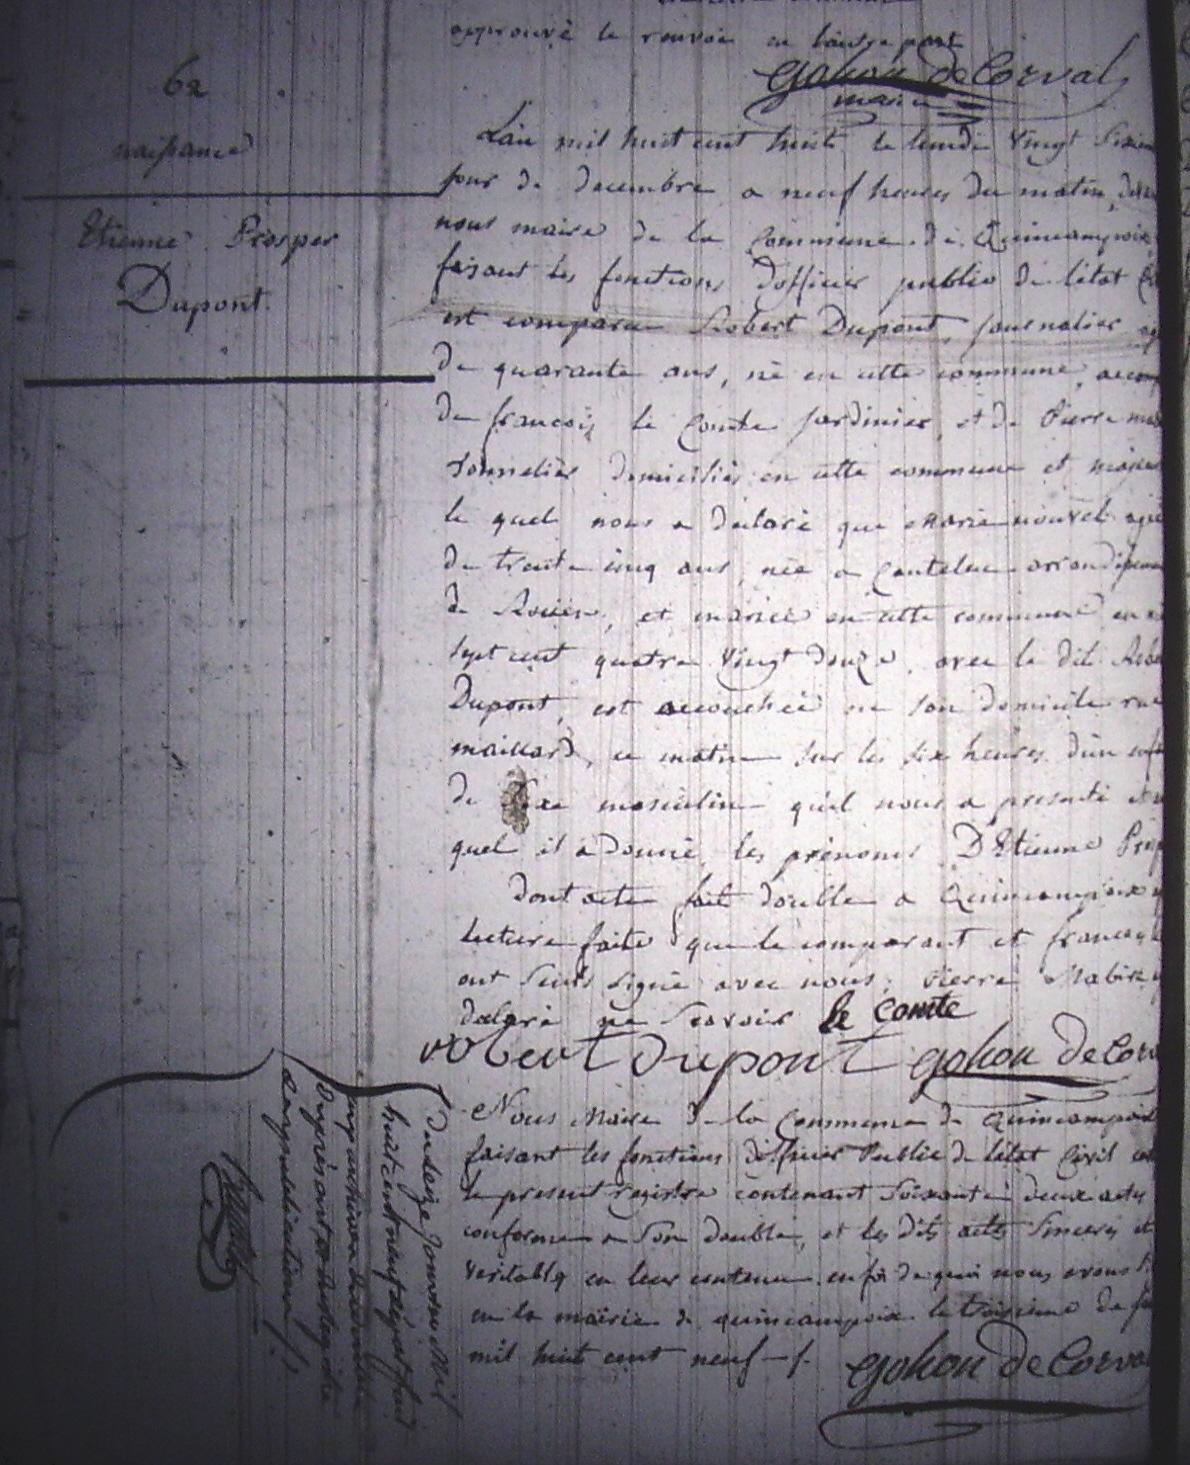 approuvé le renvoi en l'autre part
Gohon de Corval
maire
62
naissance
Etienne Prosper
Dupont.
L'an mil huit cent huit le lundi vingt sixiem
jour de decembre a neuf heures du matin, devan
nous maire de la commune de Quincampoix
faisant les fonctions d'officier public de l'etat
est comparu Robert Dupont, journalier ag
de quarante ans, né en cette commune, accom
de francois le Comte jardinier, et de Pierre
tonnelier domiciliés en cette commune et majeu
le quel nous a déclaré que marie nouvel agée
de trente cinq ans, née a Canteleu arrondissem
de Rouen, et mariée en cette commune en
sept cent quatre vingt douze, avec le dit Robe
Dupont, est accouchée en son domicile rue
maillard, ce matin sur les six heures d'un enfa
de sexe masculin qu'il nous a presenté et
quel il a donné les prénoms D'Etienne Prosp
dont acte fait double a Quincampoix
lecture faite que le comparant et francois
ont seuls signé avec nous, Pierre Mabire
declaré ne scavoir le Comte
robert Dupont Gohon de Corv
Nous Maire de la Commune de Quincampoix
faisant les fonctions d'officier Public de l'etat Civil
le present registre contenant soixante deux actes
conforme a son double, et les dits actes sinceres et
veritables en leur contenu en foi de quoi nous avons
en la mairie de quincampoix le troisieme de
mil huit cent neuf -/.
Gohon de Corval
du seize Janvier Mil
huit cent neuf dépôt fait
aux archives